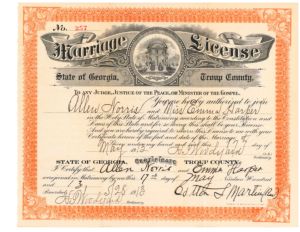 No. 257
Marriage License
State of Georgia, Troup County.
TO ANY JUDGE, JUSTICE OF THE PEACE, OR MINISTER OF THE GOSPEL.
You are hereby authorized to join
Allen Norris and Miss Emma Harper
in the Holy State of Matrimony according to the Constitution and
Laws of this State and for so doing this shall be your
And you are hereby required to return this License to me with your
Certificate hereon of the fact and date of the Marriage.
Given under my hand and seal this 17th
May
STATE OF GEORGIA, Certificate TROUP COUNTY.
I Certify that Allen Norris and Emma Harper
were joined in Matrimony by me this 17th day of May Nineteen Hundred
and 3
Recorded
Martin